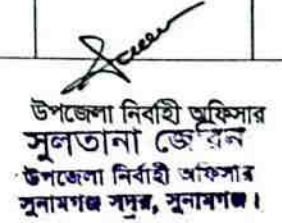 উপজেলা নির্বাহী অফিসার
সুলতানা জেরিন
উপজেলা নির্বাহী অফিসার
সুনামগঞ্জ সদর, সুনামগঞ্জ।